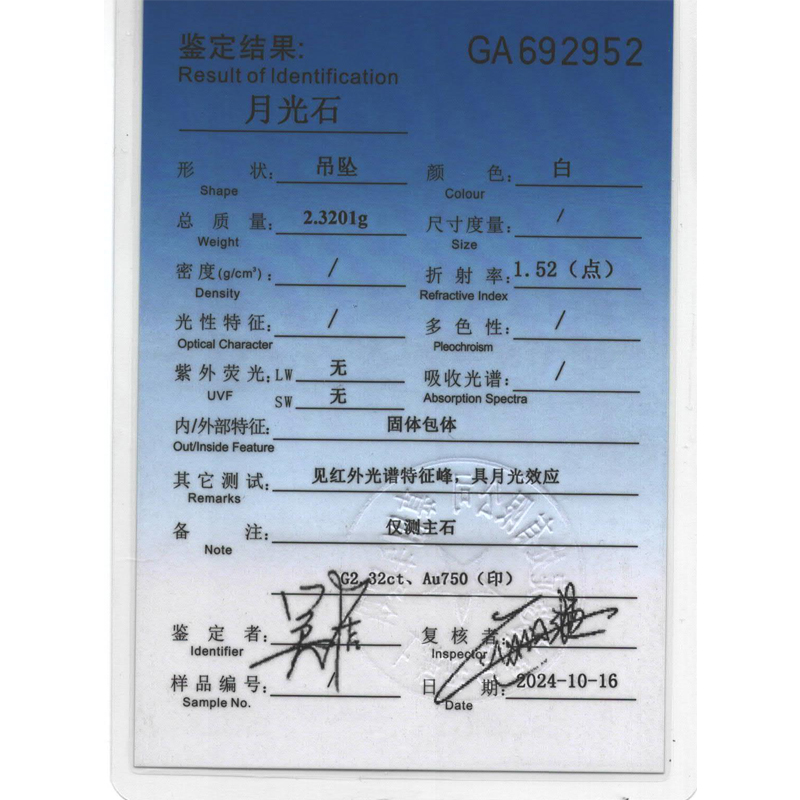 鉴定结果: GA692952
Result of Identification
月光石
形 状: 吊坠 颜 色: 白
Shape Colour
总 质 量: 2.3201g 尺寸度量: /
Weight Size
密 度(g/cm³): / 折 射 率: 1.52（点）
Density Refractive Index
光 性 特 征: / 多 色 性: /
Optical Character Pleochroism
紫 外 荧 光: LW 无 吸收光谱: /
UVF SW 无 Absorption Spectra
内/外部特征: 固体包体
Out/Inside Feature
其 它 测 试: 见红外光谱特征峰，具月光效应
Remarks
备 注: 仅测主石
Note
G2.32ct、Au750（印）
鉴 定 者: 复 核 者:
Identifier Inspector
样 品 编 号: / 日 期: 2024-10-16
Sample No. Date